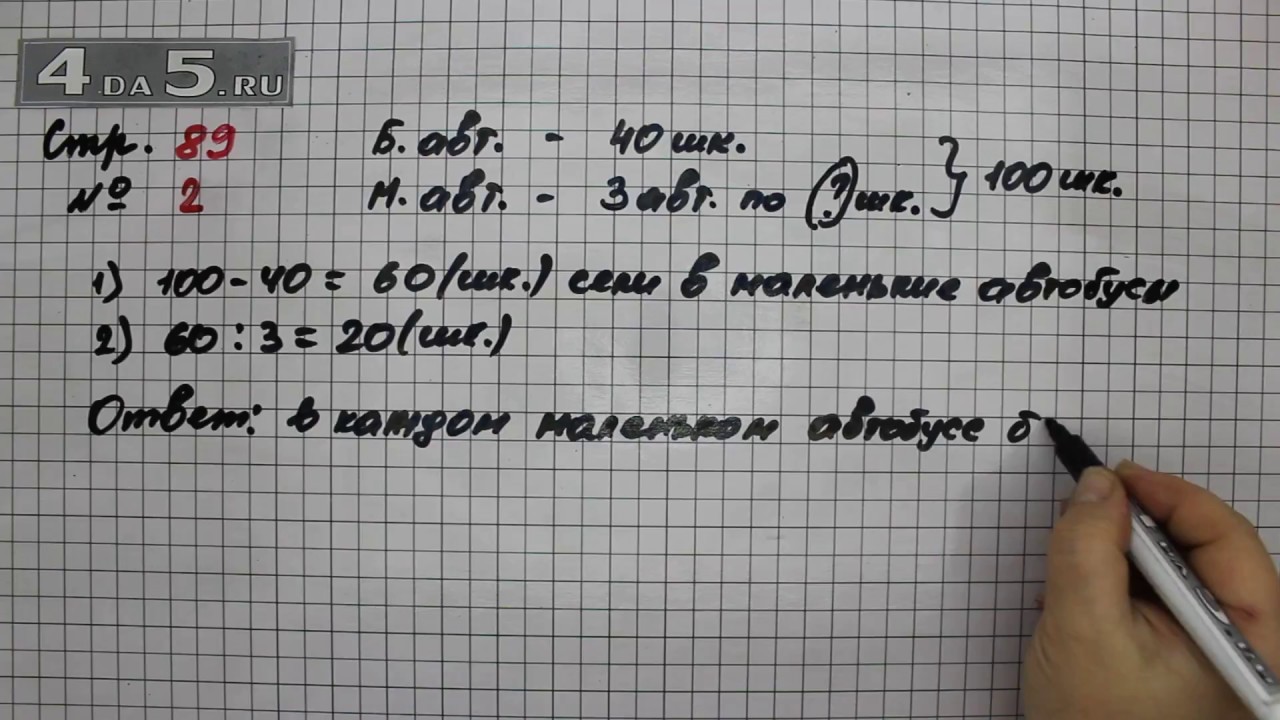 4 DA 5.RU
Стр. 89
№ 2
Б. авт. - 40 шк.
М. авт. - 3 авт. по (?) шк. } 100 шк.
1) 100 - 40 = 60 (шк.) сели в маленькие автобусы
2) 60 : 3 = 20 (шк.)
Ответ: в каждом маленьком автобусе б